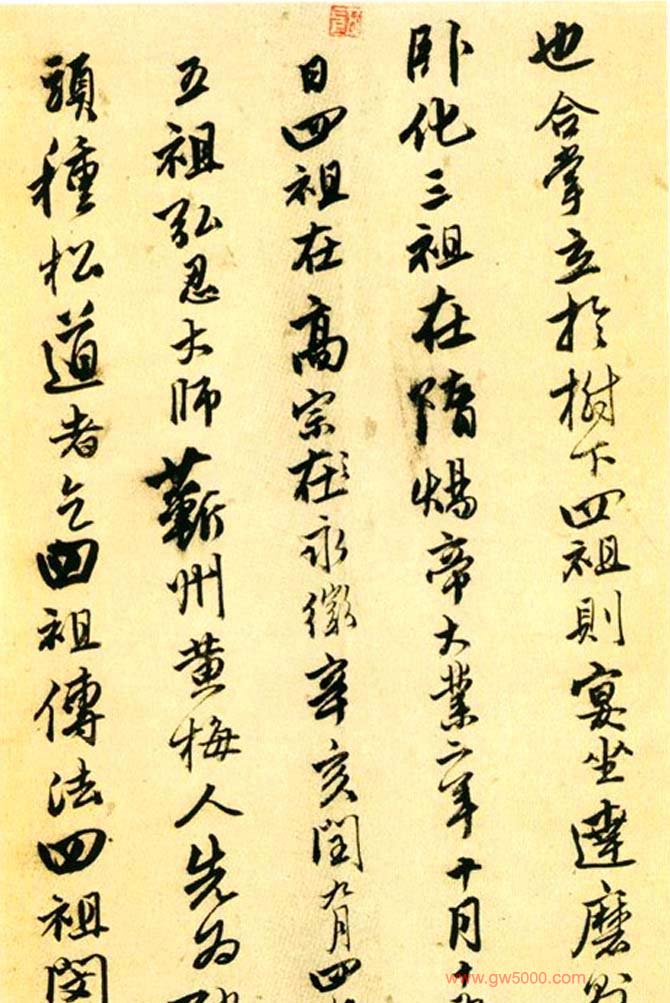 也合掌立於樹下四祖則宴坐達磨則
卧化三祖在隋煬帝大業二年十月十
日四祖在高宗在永徽辛亥閏九月四
五祖弘忍大师蘄州黄梅人先为
頭種松道者乞四祖傳法四祖閔
www.gw5000.com